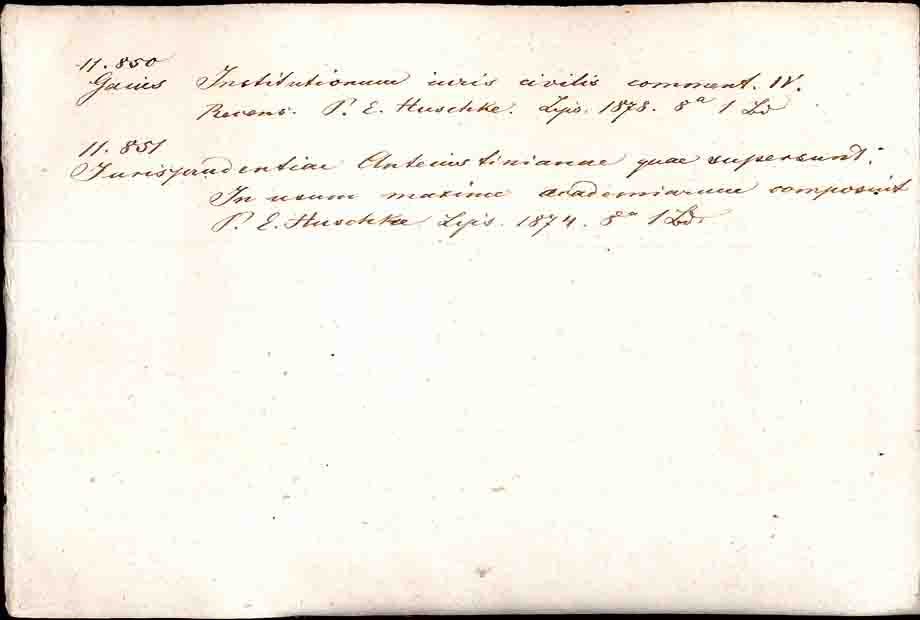 11.850
Gaius Institutionum iuris civilis comment. IV.
Recens. P. E. Huschke. Lps. 1878. 8a 1 Bd
11.851
Jurisprudentiae Anteiustinianae quae supersunt.
In usum maxime academiarum composuit
P. E. Huschke Lps. 1874. 8a 1 Bd